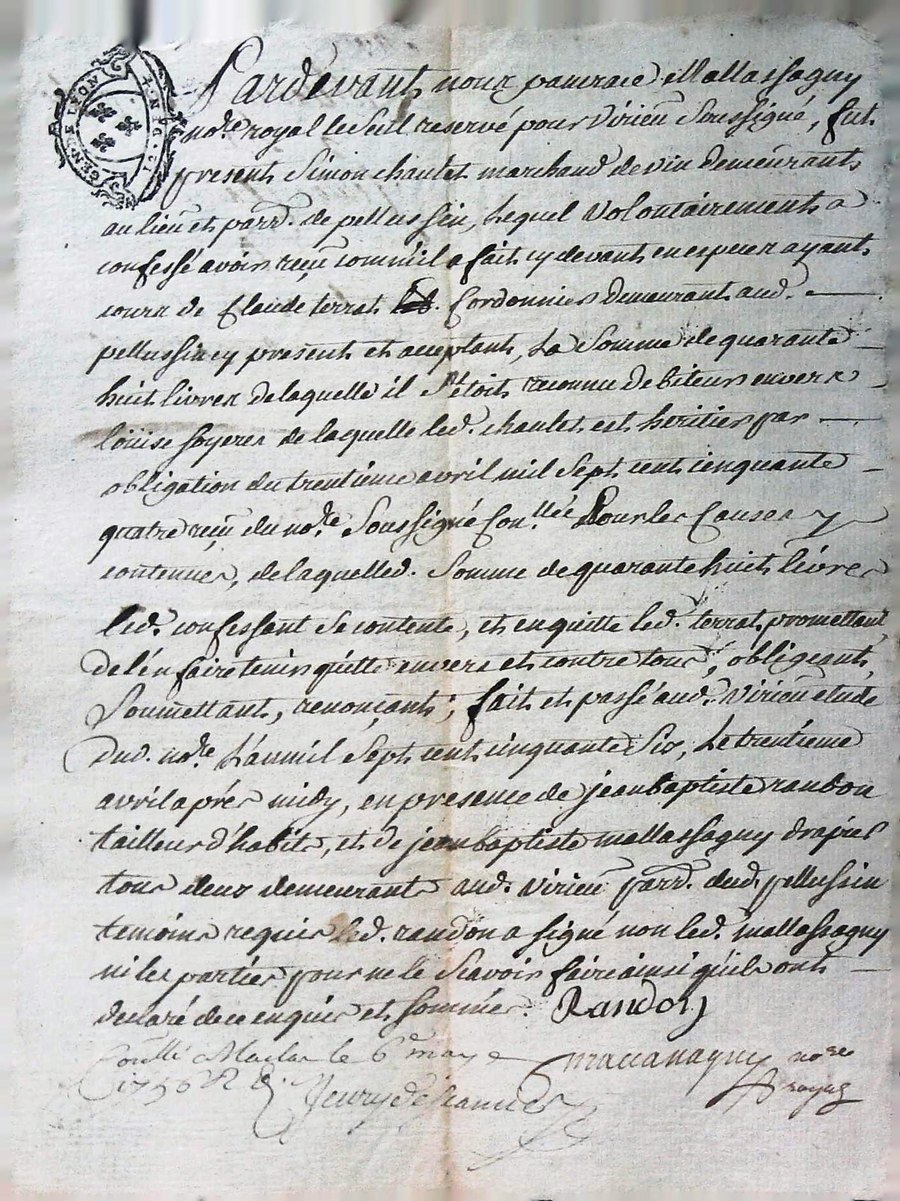 GEN. DE LYON
Pardevant nous pancrace Mallassagny
no.re royal le seul reservé pour virieu soussigné, fut
present Simon chaulet marchand de vin demeurant
au lieu et parr. de pellussin, Lequel volontairement a
confessé avoir reçu comm'il a fait cy devant en especes ayant
cours de Claude terrat Cordonnier demeurant aud.
pellussin cy present et acceptant, La somme de quarante
huit livres de laquelle il s'etoit reconnu debiteur envers
loüise foyeres de laquelle led. chaulet est heritier par
obligation du trentieme avril mil sept cent cinquante
quatre reçu du no.re soussigné Con.llée Pour les Causes y
contenues, de laquelled. somme de quarante huit livres
led. confessant se contente, et en quitte led. terrat promettant
de l'en faire tenir quitte envers et contre tous, obligeant,
soumettant, renonçant; fait et passé aud. virieu etude
dud. no.re L'an mil sept cent cinquante six, Le trentieme
avril après midy, en presence de jean baptiste randon
tailleur d'habits, et de jean baptiste mallassagny drapier
tous deux demeurants aud. virieu parr. dud. pellussin
temoins requis led. randon a signé non led. mallassagny
ni les parties pour ne le sçavoir faire ainsi qu'ils ont
declaré de ce enquis et sommés. Randon
Con.llé Maclas le 6e may mallassagny no.re
1756 royal